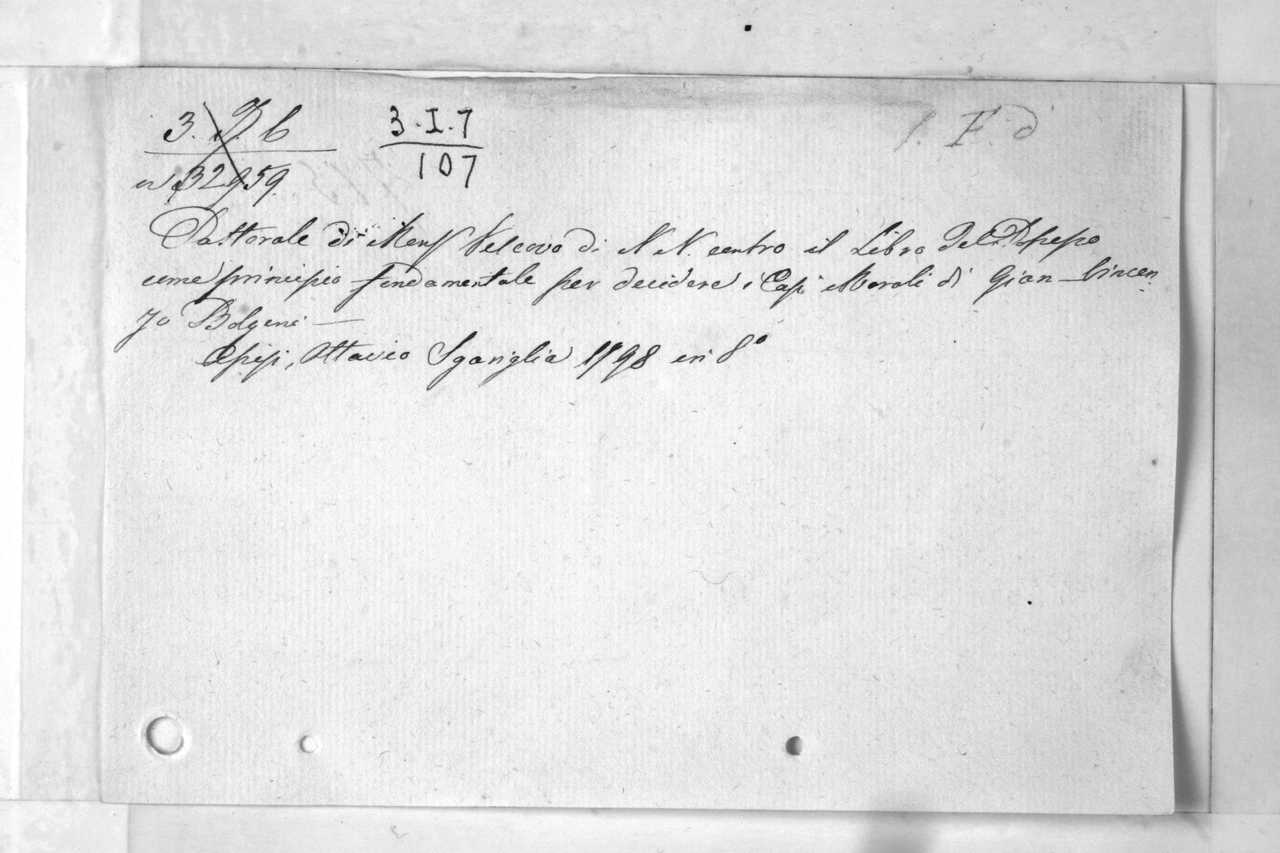 3. D. 6
3.I.7
1. F. d
32959
107
Pastorale di Mons Vescovo di N N. contro il Libro Del Possesso
come principio fondamentale per decidere i Casi Morali di Gian-Vincen
zo Bolgeni —
Assisi, Ottavio Sgariglia 1798 in 8°